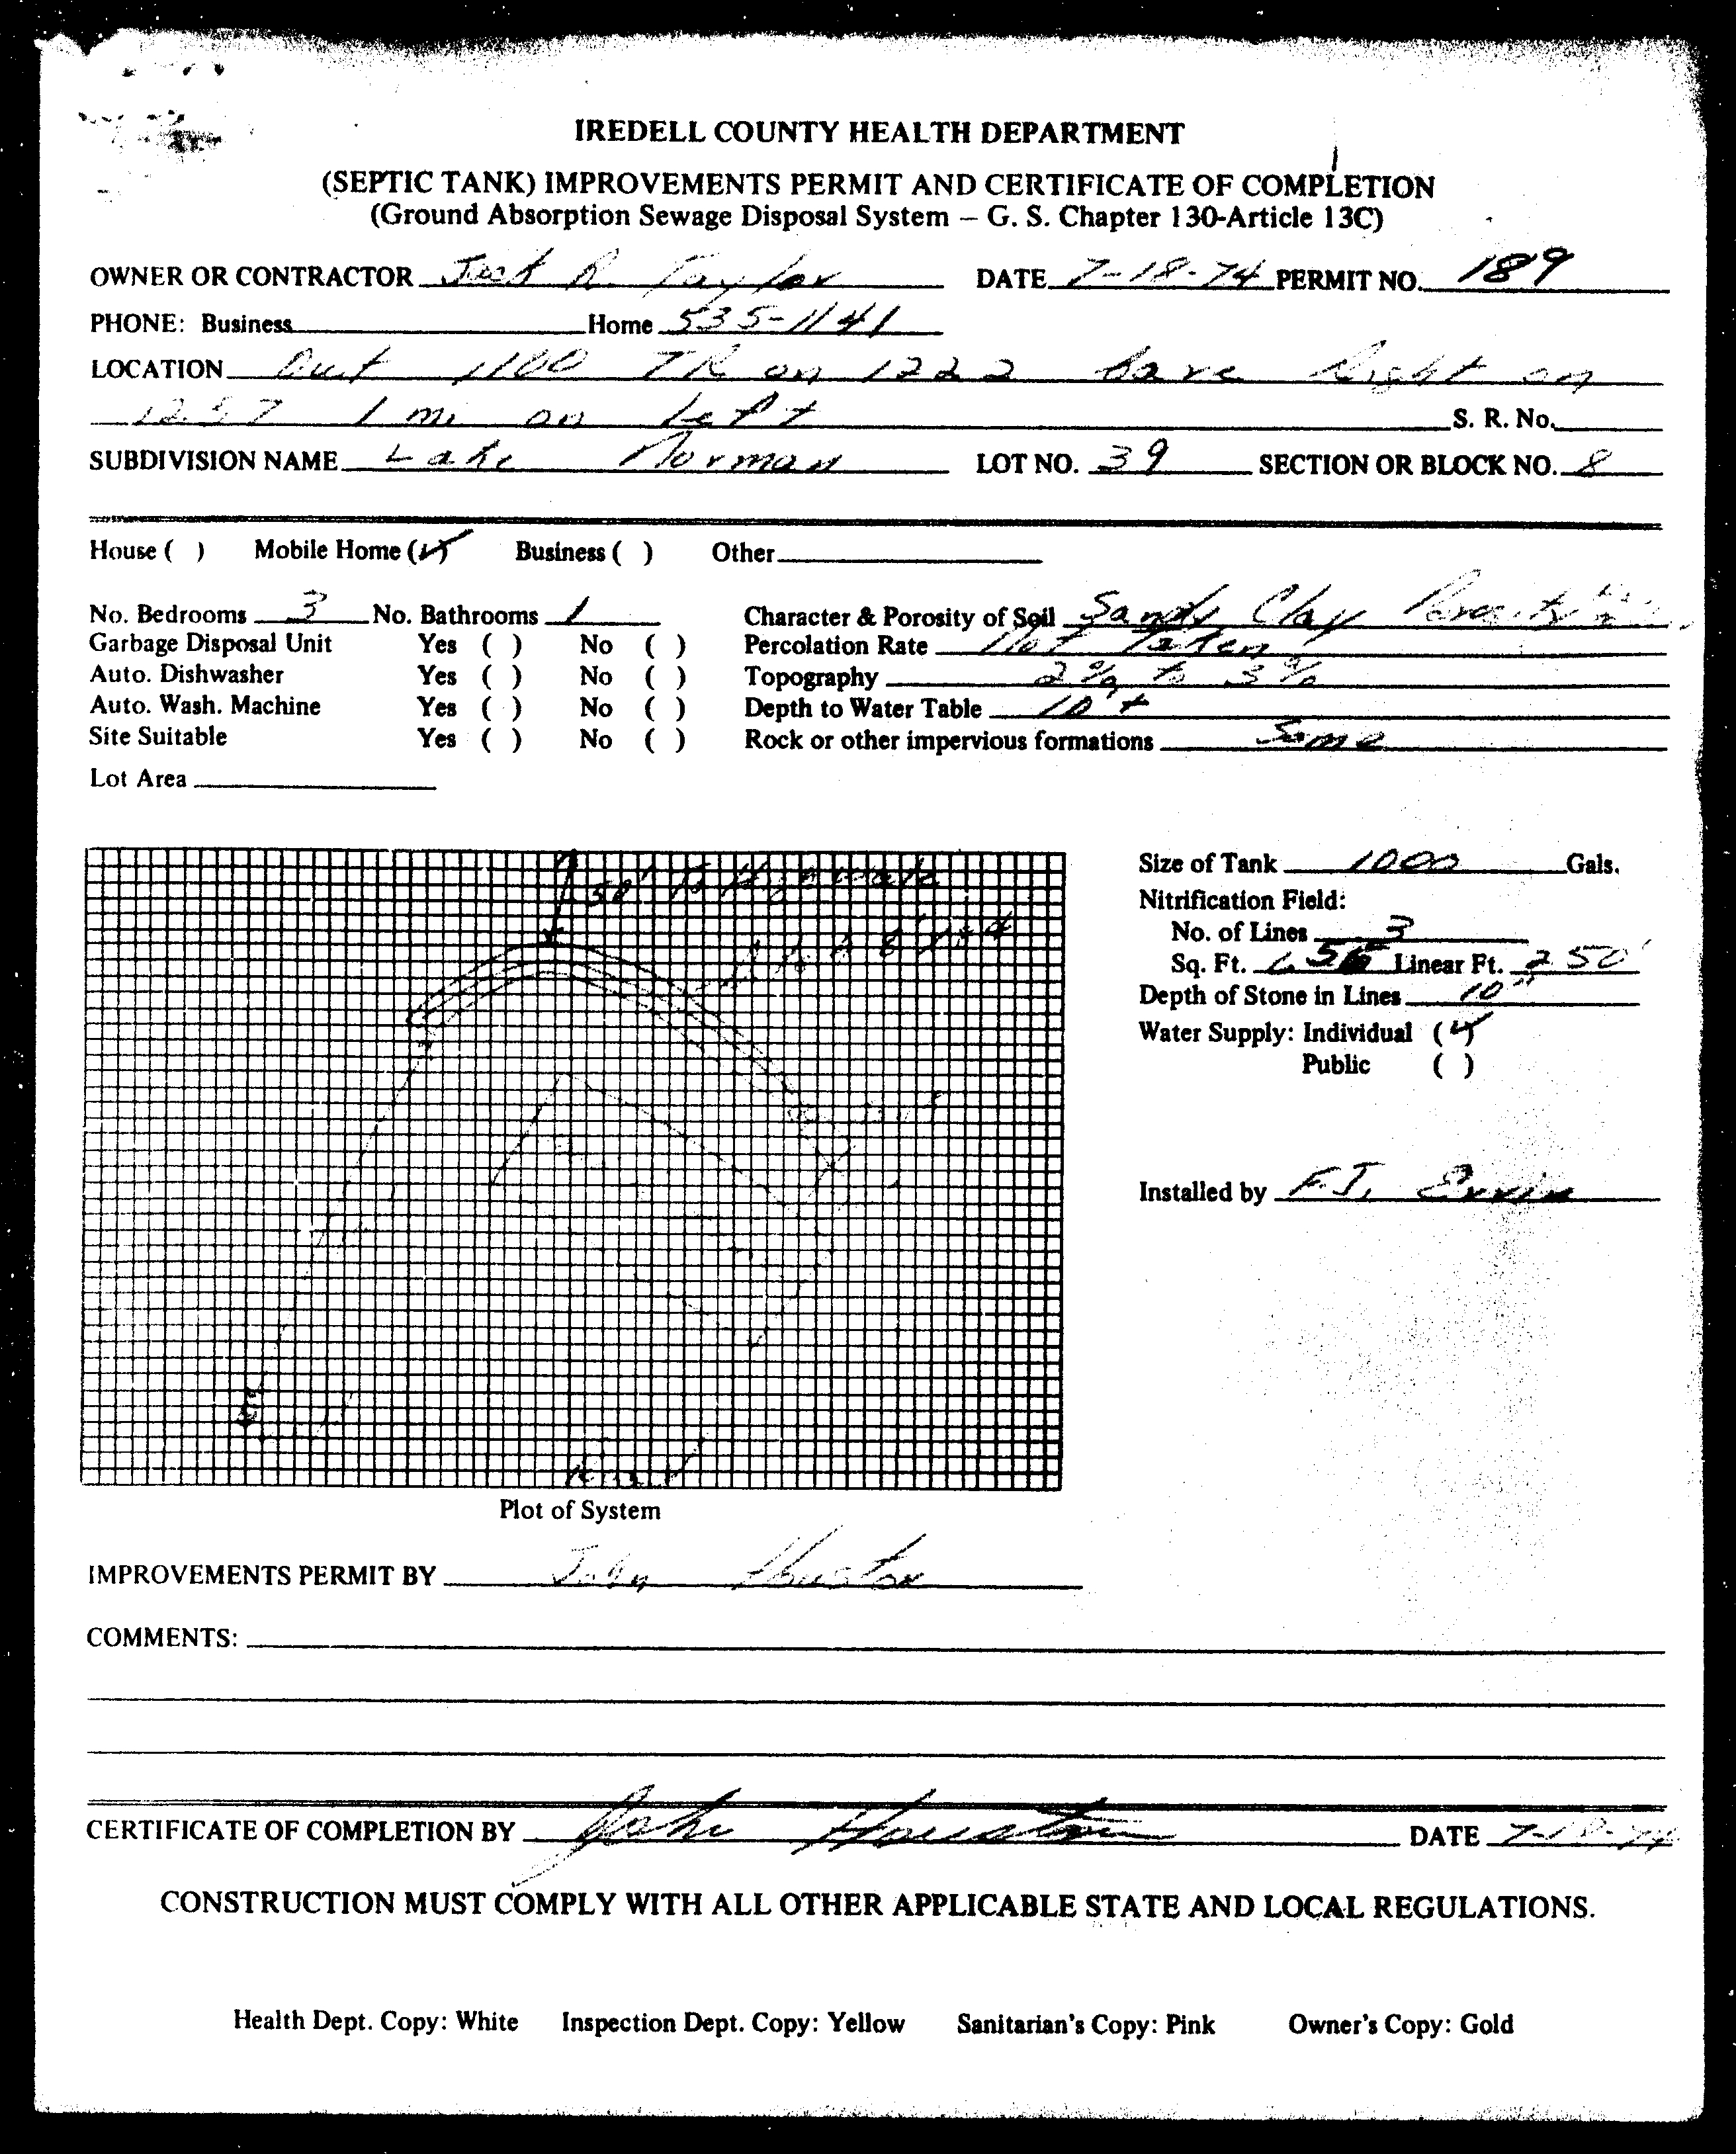 IREDELL COUNTY HEALTH DEPARTMENT
(SEPTIC TANK) IMPROVEMENTS PERMIT AND CERTIFICATE OF COMPLETION
(Ground Absorption Sewage Disposal System – G. S. Chapter 130-Article 13C)
OWNER OR CONTRACTOR Jack R. Taylor DATE 7-18-74 PERMIT NO. 189
PHONE: Business Home 535-1141
LOCATION Out 1100 TR on 1222 bare Right on
1237 1 mi on left S. R. No.
SUBDIVISION NAME Lake Norman LOT NO. 39 SECTION OR BLOCK NO. 8
House ( ) Mobile Home (✓) Business ( ) Other
No. Bedrooms 3 No. Bathrooms 1 Character & Porosity of Soil Sandy Clay Porosity
Garbage Disposal Unit Yes ( ) No ( ) Percolation Rate Not Taken
Auto. Dishwasher Yes ( ) No ( ) Topography 2% to 3%
Auto. Wash. Machine Yes ( ) No ( ) Depth to Water Table 10'+
Site Suitable Yes ( ) No ( ) Rock or other impervious formations Some
Lot Area
50' to
Size of Tank 1000 Gals.
Nitrification Field:
No. of Lines 3
Sq. Ft. Linear Ft. 250'
Depth of Stone in Lines 10"
Water Supply: Individual (✓)
Public ( )
Installed by F.J. Ervin
Plot of System
IMPROVEMENTS PERMIT BY John Houston
COMMENTS:
CERTIFICATE OF COMPLETION BY John Houston DATE 7-18-74
CONSTRUCTION MUST COMPLY WITH ALL OTHER APPLICABLE STATE AND LOCAL REGULATIONS.
Health Dept. Copy: White Inspection Dept. Copy: Yellow Sanitarian's Copy: Pink Owner's Copy: Gold